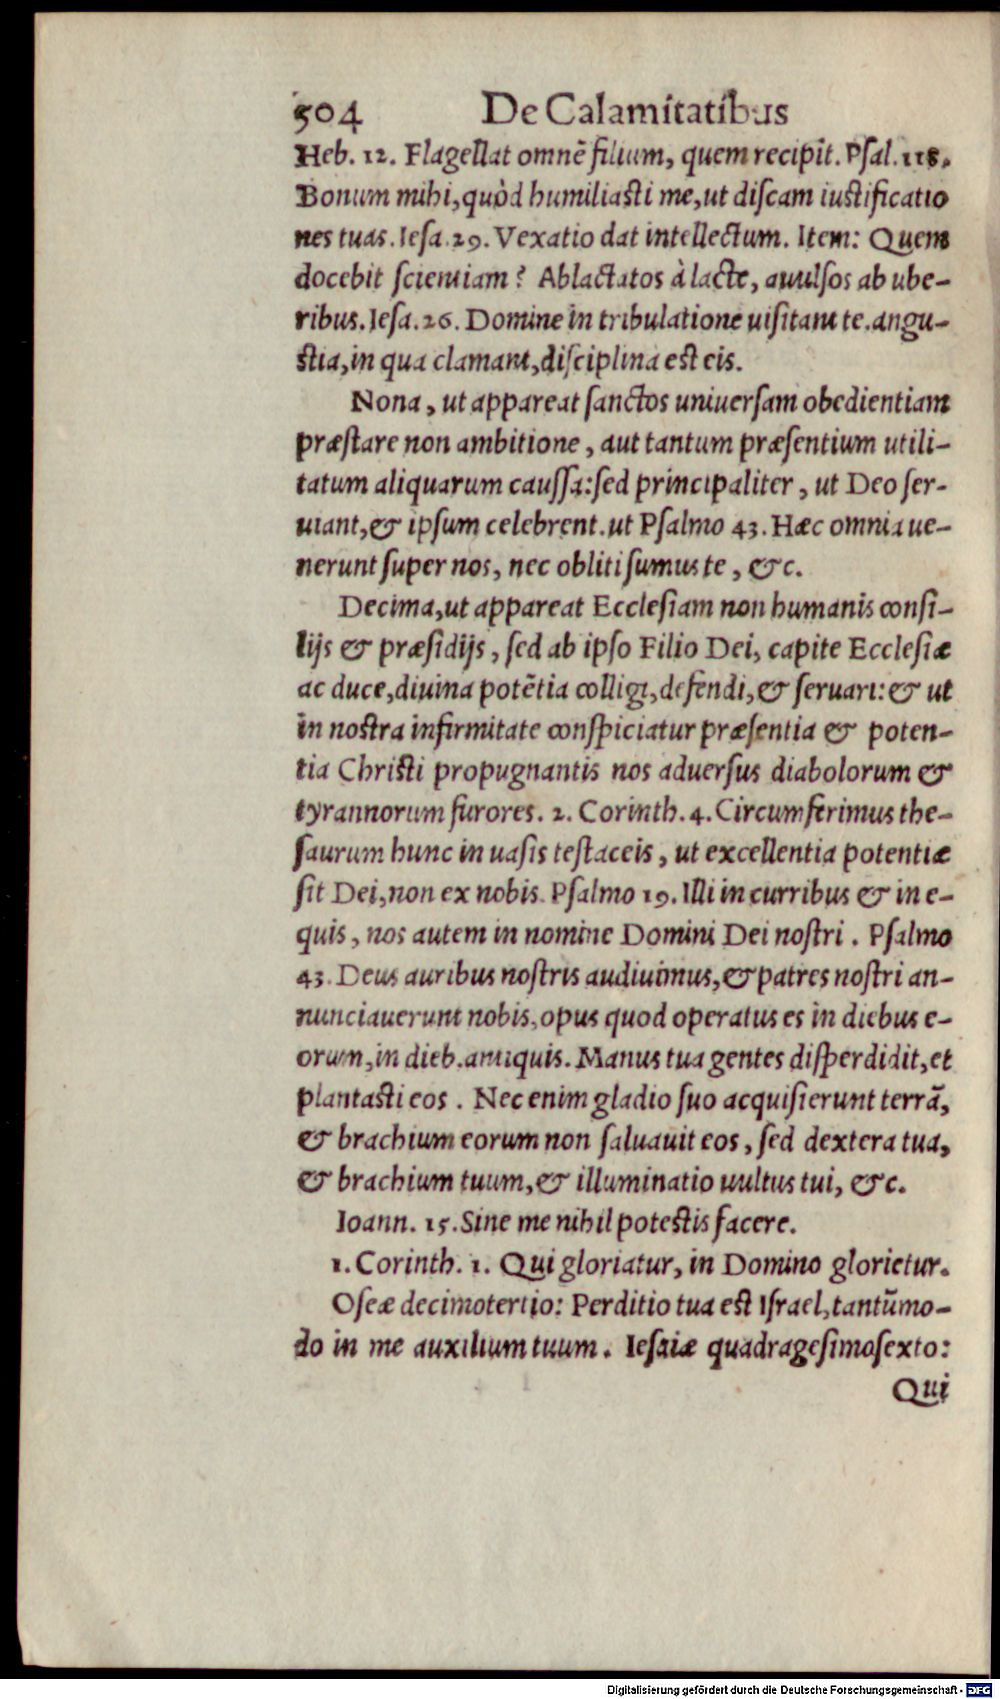 504 De Calamitatibus
Heb. 12. Flagellat omnē filium, quem recipit. Psal. 118.
Bonum mihi, quòd humiliasti me, ut discam iustificatio
nes tuas. Iesa. 29. Vexatio dat intellectum. Item: Quem
docebit scientiam? Ablactatos à lacte, auulsos ab ube-
ribus. Iesa. 26. Domine in tribulatione uisitant te. angu-
stia, in qua clamant, disciplina est eis.
Nona, ut appareat sanctos uniuersam obedientiam
præstare non ambitione, aut tantum præsentium utili-
tatum aliquarum caussa: sed principaliter, ut Deo ser-
uiant, & ipsum celebrent. ut Psalmo 43. Hæc omnia ue-
nerunt super nos, nec obliti sumus te, &c.
Decima, ut appareat Ecclesiam non humanis consi-
lijs & præsidijs, sed ab ipso Filio Dei, capite Ecclesiæ
ac duce, diuina potētia colligi, defendi, & seruari: & ut
in nostra infirmitate conspiciatur præsentia & poten-
tia Christi propugnantis nos aduersus diabolorum &
tyrannorum furores. 2. Corinth. 4. Circumferimus the-
saurum hunc in uasis testaceis, ut excellentia potentiæ
sit Dei, non ex nobis. Psalmo 19. Illi in curribus & in e-
quis, nos autem in nomine Domini Dei nostri. Psalmo
43. Deus auribus nostris audiuimus, & patres nostri an-
nunciauerunt nobis, opus quod operatus es in diebus e-
orum, in dieb. antiquis. Manus tua gentes disperdidit, et
plantasti eos. Nec enim gladio suo acquisierunt terrā,
& brachium eorum non saluauit eos, sed dextera tua,
& brachium tuum, & illuminatio uultus tui, &c.
Ioann. 15. Sine me nihil potestis facere.
1. Corinth. 1. Qui gloriatur, in Domino glorietur.
Oseæ decimotertio: Perditio tua est Israel, tantūmo-
do in me auxilium tuum. Iesaiæ quadragesimosexto:
Qui
Digitalisierung gefördert durch die Deutsche Forschungsgemeinschaft - DFG